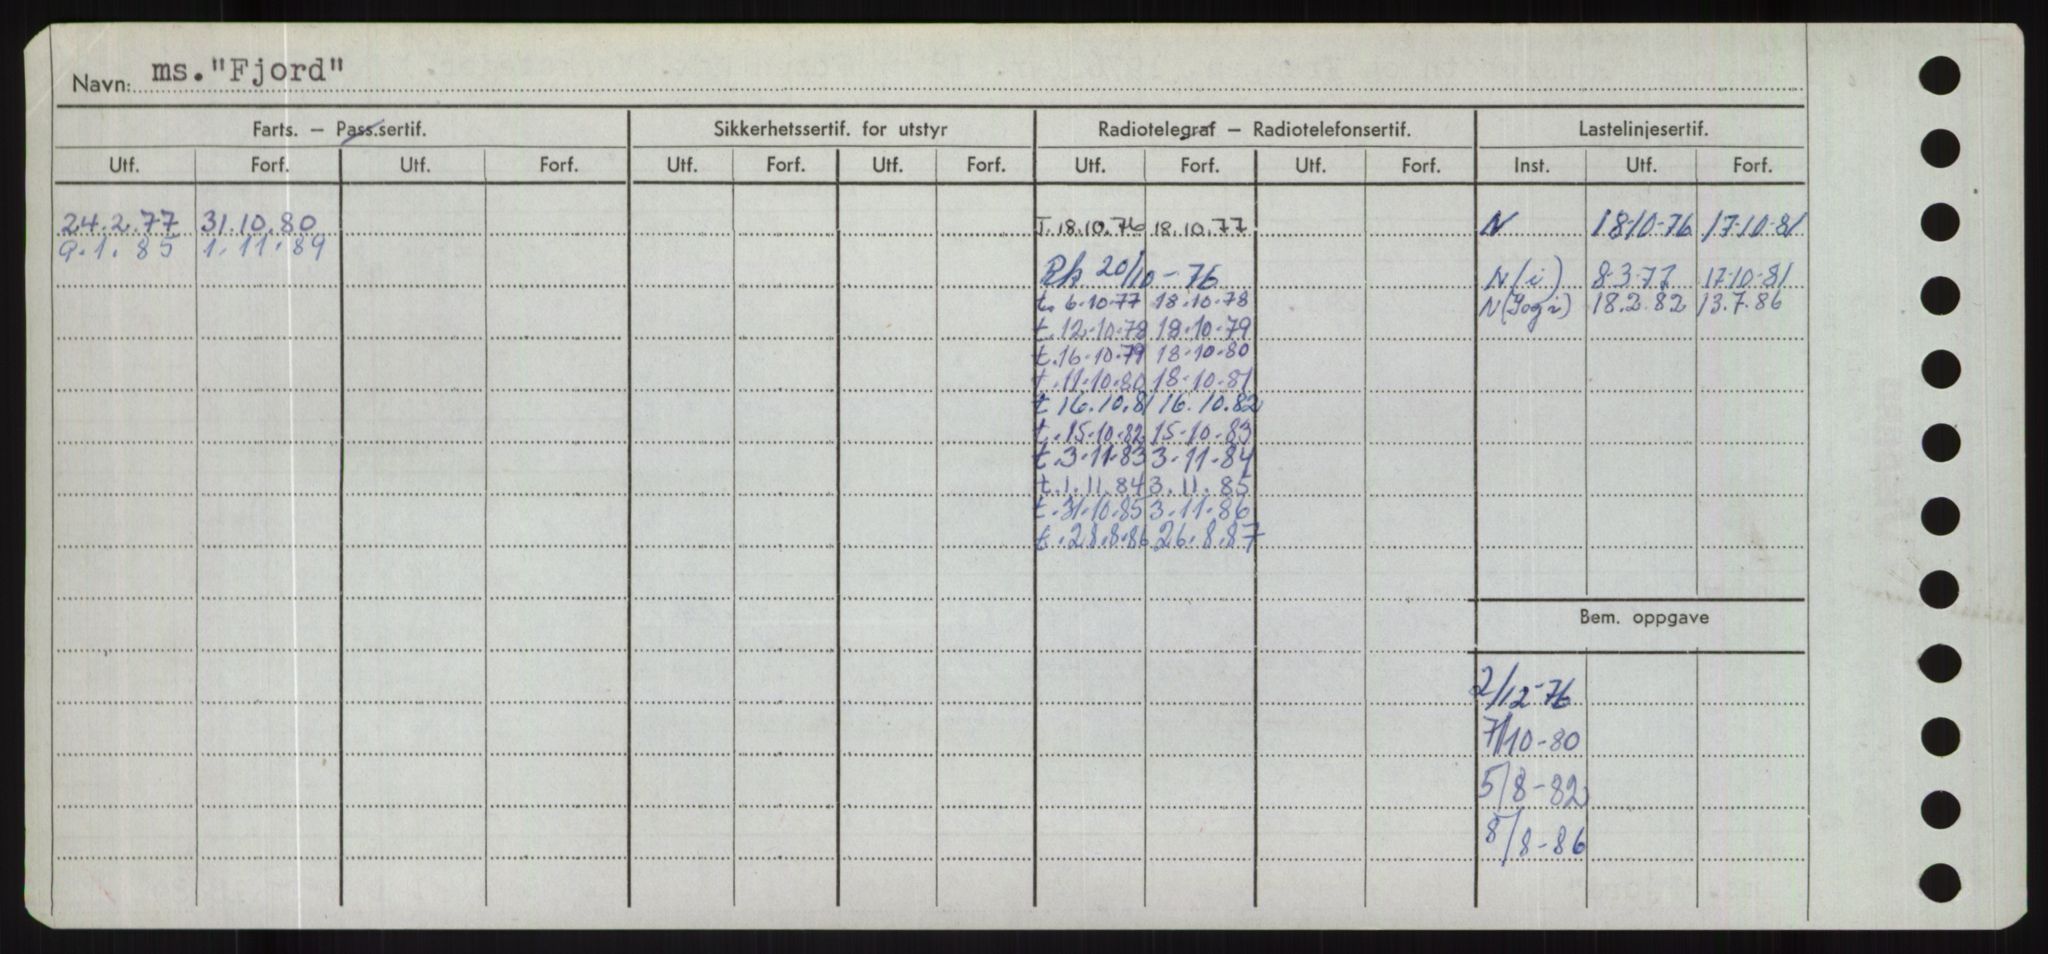 Navn: ms. "Fjord"
Farts. – Pass.sertif. Sikkerhetssertif. for utstyr Radiotelegraf – Radiotelefonsertif. Lastelinjesertif.
Utf. Forf. Utf. Forf. Utf. Forf. Utf. Forf. Utf. Forf. Utf. Forf. Inst. Utf. Forf.
24.2.77 31.10.80 T.18.10.76 18.10.77 N 18-10-76 17-10-81
9.1.85 1.11.89
Rk 20/10-76 N(i) 8-3-77 17-10-81
t. 6-10-77 18-10-78 N( og i) 18.2.82 13.7.86
t.12-10-78 18-10-79
t.16-10-79 18-10-80
t.11-10-80 18-10-81
t 16.10.81 16.10.82
t.15-10-82 15-10-83
t.3-11-83 3-11-84
t.1.11.84 3.11.85
t.31-10-85 3-11-86
t.28.8.86 26.8.87
Bem. oppgave
2/12-76
7/10-80
5/8-82
8/8-86